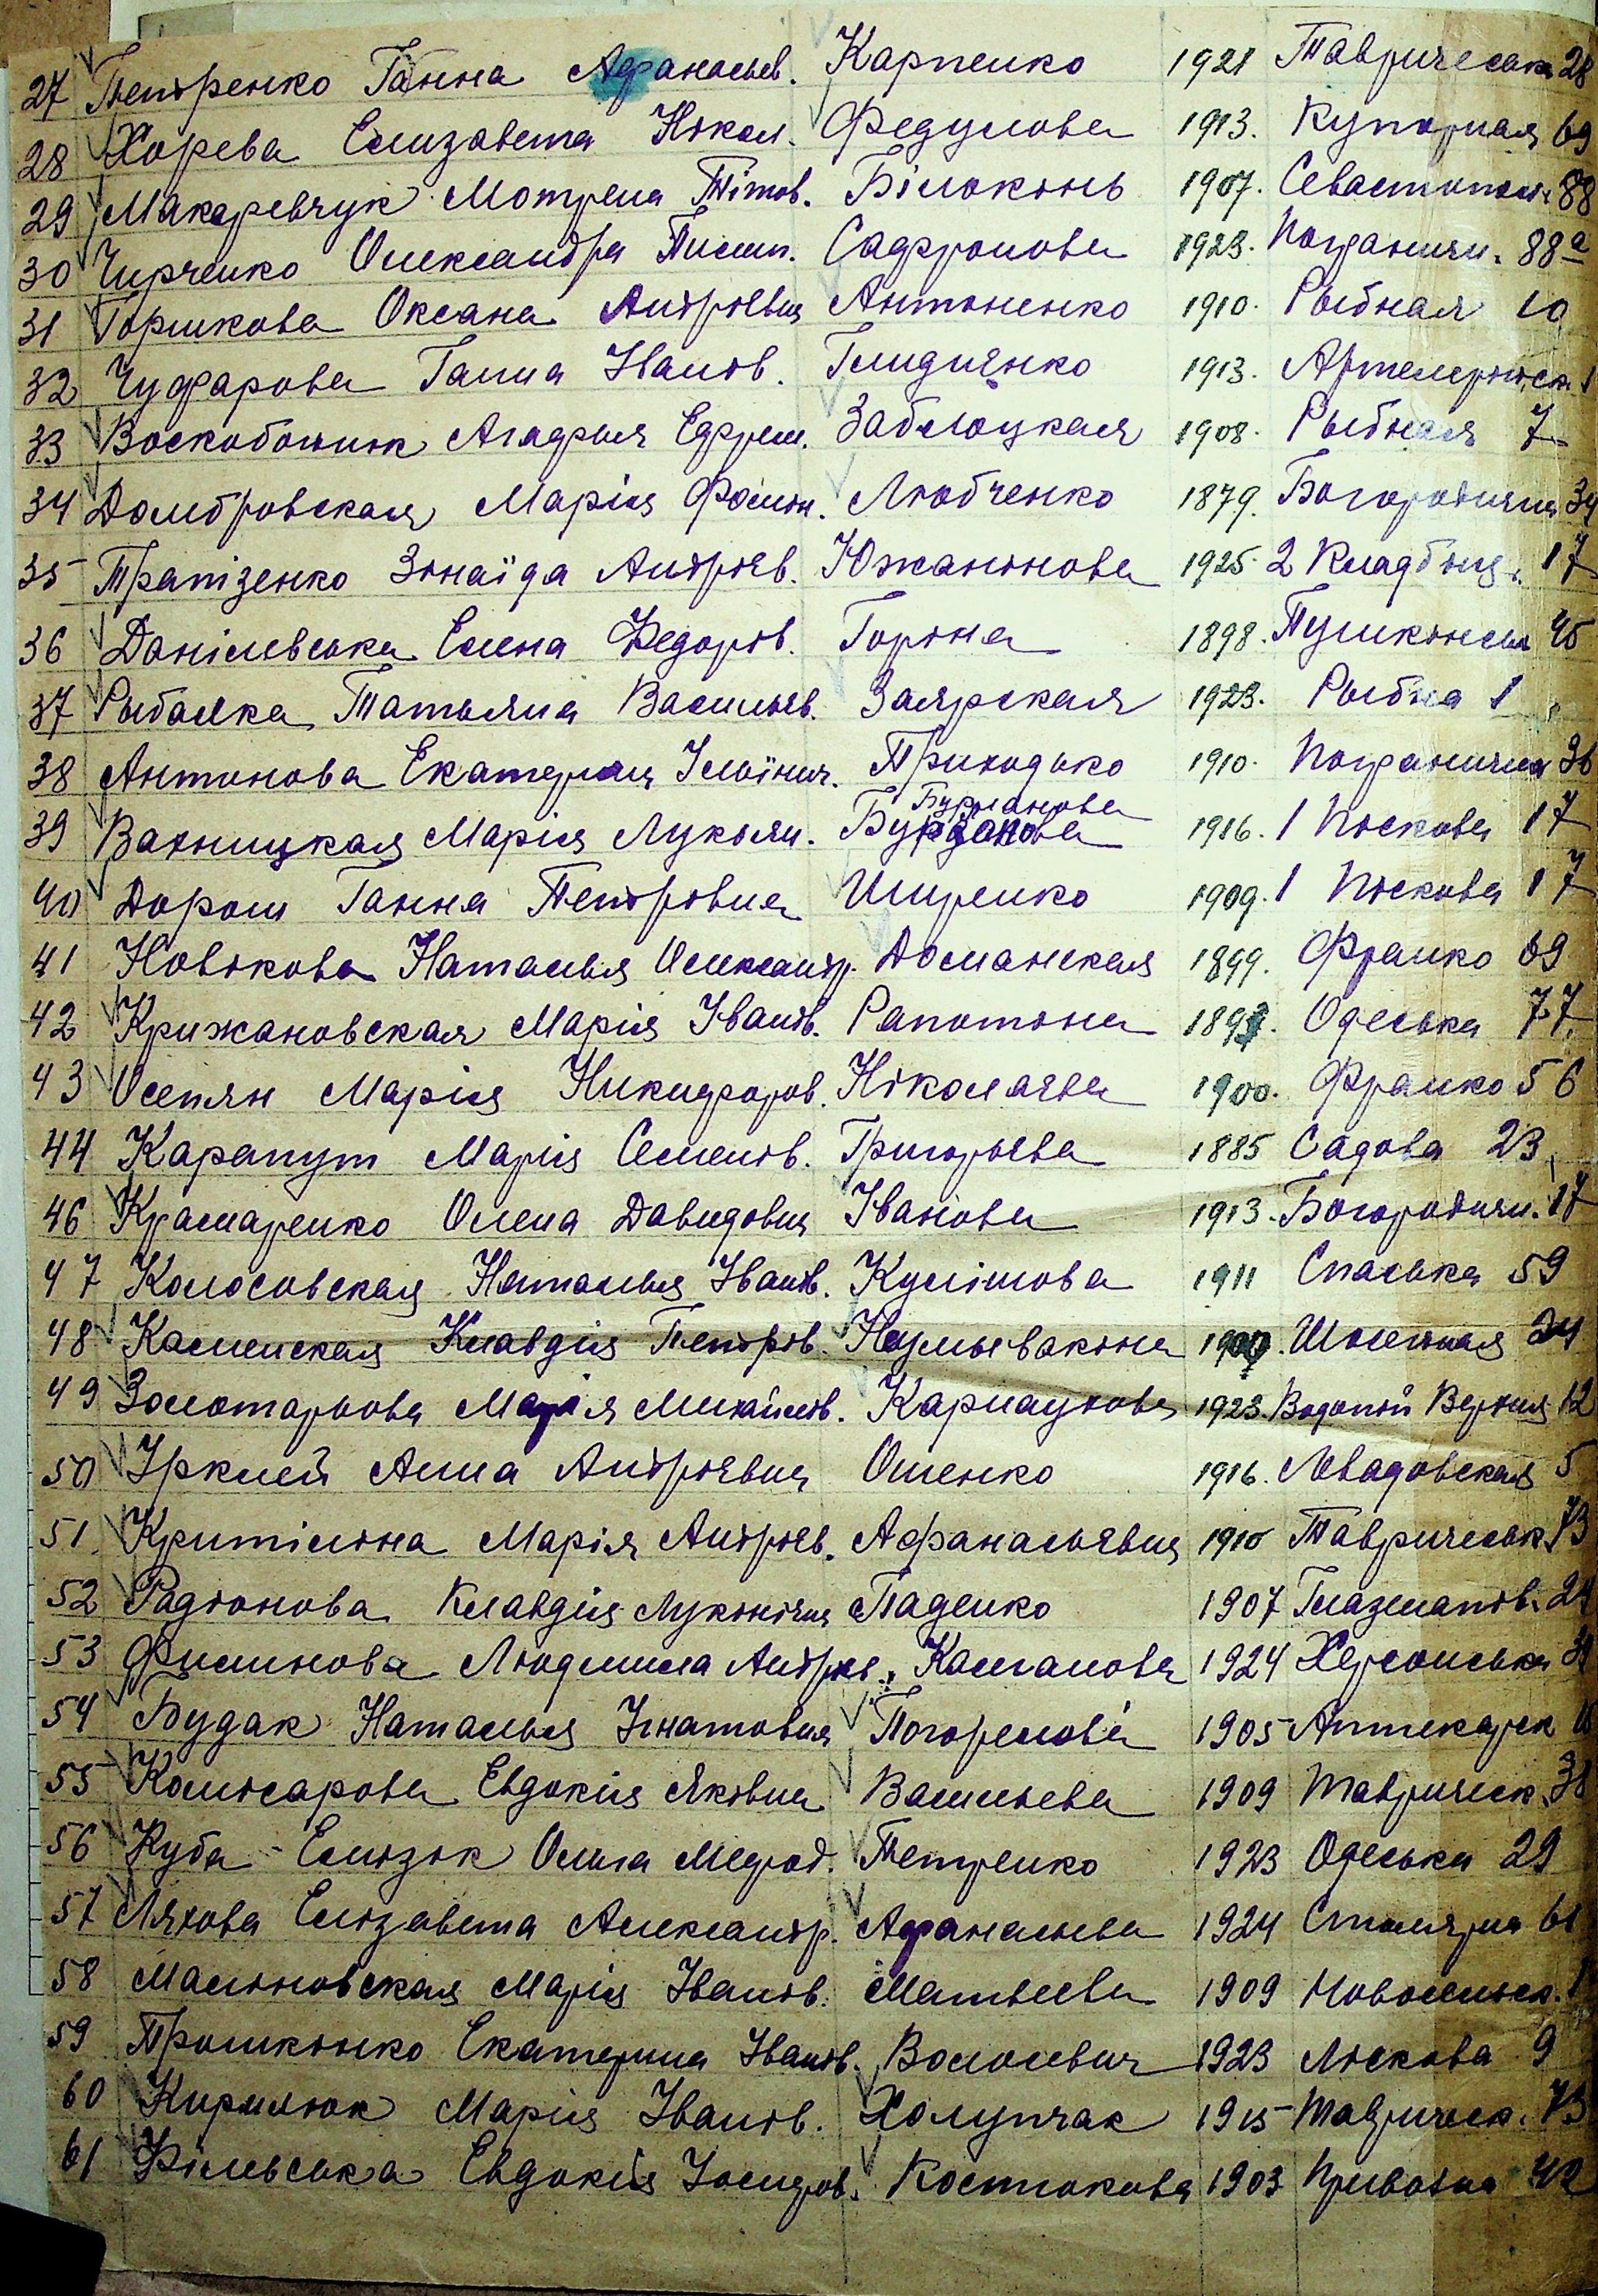 27 Петренко Ганна Афанасьев. Карпенко 1921 Тавричеська 28
28 Хорева Елизавета Нікол. Федулова 1913. Купорная 69
29 Макаревчук Мотрена Тітов. Білоконь 1907. Севастопол. 88
30 Чирченко Олександра Пилип. Сафронова 1923. Погранични. 88а
31 Горшкова Оксана Андріевна Антоненко 1910. Рыбная 10
32 Чуфарова Ганна Іванов. Гнидченко 1913. 1
33 Воскобойник Агафья Ефрем. Заблоцкая 1908. Рыбная 7
34 Домбровская Марія Фомін. Любченко 1879. Богороднича 34
35 Трапізенко Зінаїда Андріев. Южанінова 1925. 2 Кладбищ. 17
36 Данілевська Елена Федоров. Горіна 1898. Пушкінська 45
37 Рыбалка Татьяна Васильев. Заярская 1923. Рыбна 1
38 Антонова Екатерина Ільїнич. Приходько 1910. Погранична 36
Бурманова
39 Вахницкая Марія Лукьян. 1916. 1 Піскова 17
40 Дорош Ганна Петровна Ищенко 1909. 1 Піскова 17
41 Новікова Наталья Олександр. Доманская 1899. Франко 69
42 Крижановская Марія Іванів. Рапотіна Одеська 77
43 Осепян Марія Никифоров. Ніколаєва 1900. Франко 56
44 Карапут Марія Семенов. Григорьева 1885 Садова 23
46 Крамаренко Олена Давидовна Іванова 1913. Богороднич. 17
47 Колосовская Наталья Іванів. Кулішова 1911 Спаська 59
48 Каменская Клавдія Петрів. Шосейная 24
49 Золотарьова Марія Михайлів. Карнаухова 1923. Водопой Верхня 12
50 Іркліей Анна Андріевна Ошенко 1916. Левадовская 5
51 Критиліна Марія Андріев. Афанасьевна 1910 Тавричеськ. 73
52 Радіонова Клавдія Лукінічна Паденко 1907 24
53 Филинова Людмила Андріев. Калганова 1924 Херсонська 31
54 Будак Наталья Ігнатовна Погорелова 1905 Аптекарск 18
55 Комісарова Евдокія Яківна Васильева 1909 Тавричеськ. 38
56 Куба - Елізік Ольга Мефод. Петренко 1923 Одеська 29
57 Ляхова Елізавета Александр. Афанасьева 1924 Столярна 61
58 Маліновская Марія Іванів. Матвеева 1909 1
59 Прошкінко Екатерина Іванів. Волосевич 1923 Піскова 9
60 Кирилюк Марія Іванов. Холупчак 1915 Тавричеськ. 73
61 Фільвська Евдокія Костюкова 1903 Привозна 42